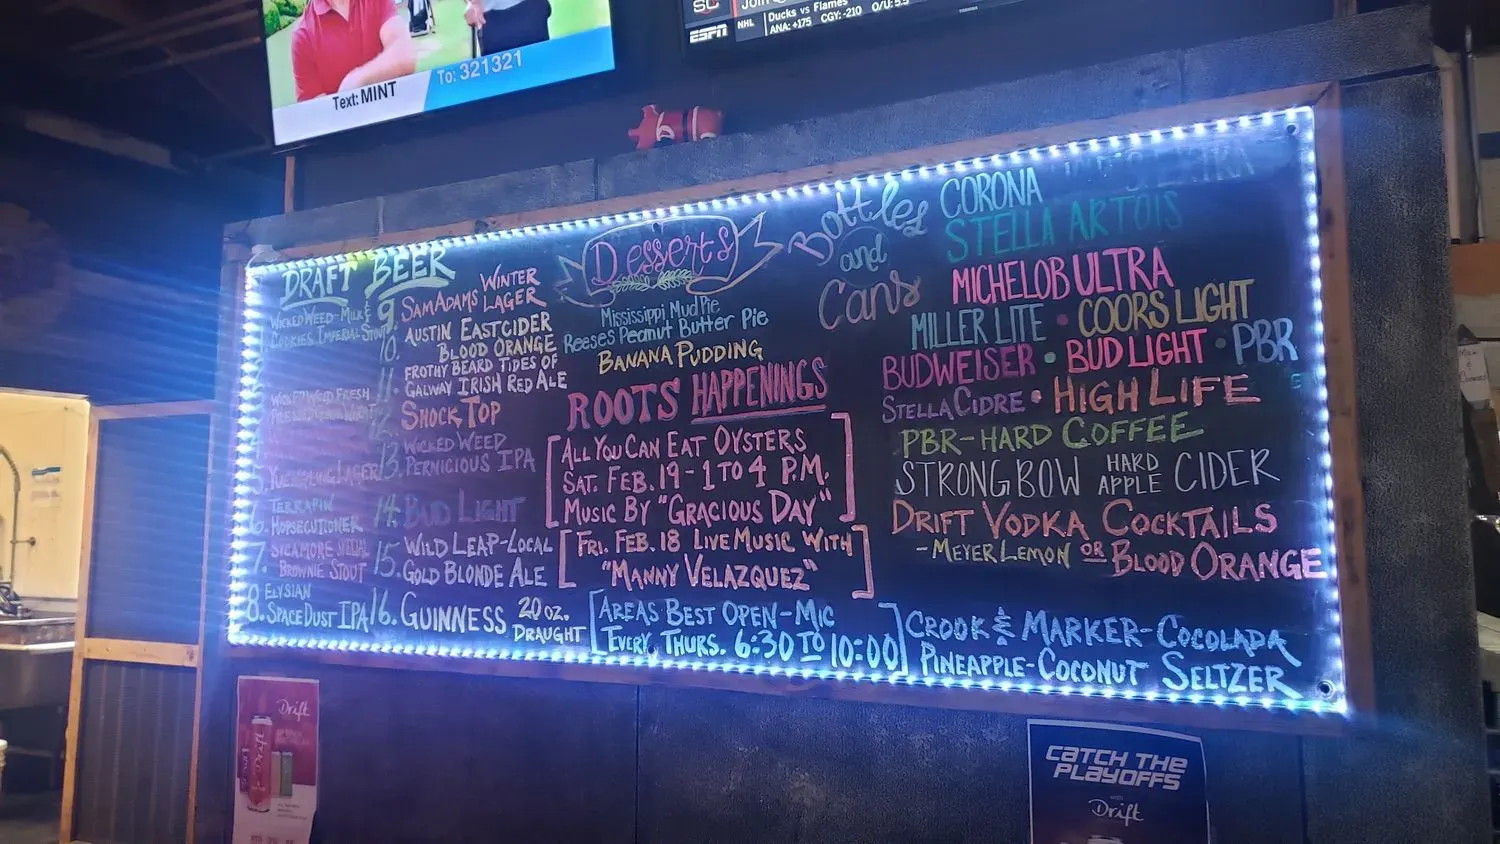 Text: MINT
To: 321321
SC
NHL
Ducks vs Flames
ESPN
ANA: +175 CGY: -210 O/U: 5.5
TOSHIBA
DRAFT BEER
WICKED WEED-MILK &
COOKIES IMPERIAL STOUT
WICKED WEED FRESH
5. YUENGLING LAGER
TERRAPIN
6. HOPSECUTIONER
7. SYCAMORE SPECIAL
BROWNIE STOUT
8. ELYSIAN
SPACE DUST IPA
9. SAM ADAMS WINTER
LAGER
10. AUSTIN EASTCIDER
BLOOD ORANGE
11. FROTHY BEARD TIDES OF
GALWAY IRISH RED ALE
12. SHOCK TOP
13. WICKED WEED
PERNICIOUS IPA
14. BUD LIGHT
15. WILD LEAP-LOCAL
GOLD BLONDE ALE
16. GUINNESS 20 OZ.
DRAUGHT
Desserts
Mississippi Mud Pie
Reeses Peanut Butter Pie
BANANA PUDDING
ROOTS HAPPENINGS
ALL YOU CAN EAT OYSTERS
SAT. FEB. 19 - 1 TO 4 P.M.
MUSIC BY "GRACIOUS DAY"
FRI. FEB. 18 LIVE MUSIC WITH
"MANNY VELAZQUEZ"
AREAS BEST OPEN-MIC
EVERY THURS. 6:30 TO 10:00
Bottles
and
Cans
CORONA
STELLA ARTOIS
MICHELOB ULTRA
MILLER LITE • COORS LIGHT
BUDWEISER • BUD LIGHT • PBR
STELLA CIDRE • HIGH LIFE
PBR-HARD COFFEE
STRONGBOW HARD APPLE CIDER
DRIFT VODKA COCKTAILS
-MEYER LEMON OR BLOOD ORANGE
CROOK & MARKER-COCOLADA
PINEAPPLE-COCONUT SELTZER
Drift
CATCH THE
PLAYOFFS
Drift